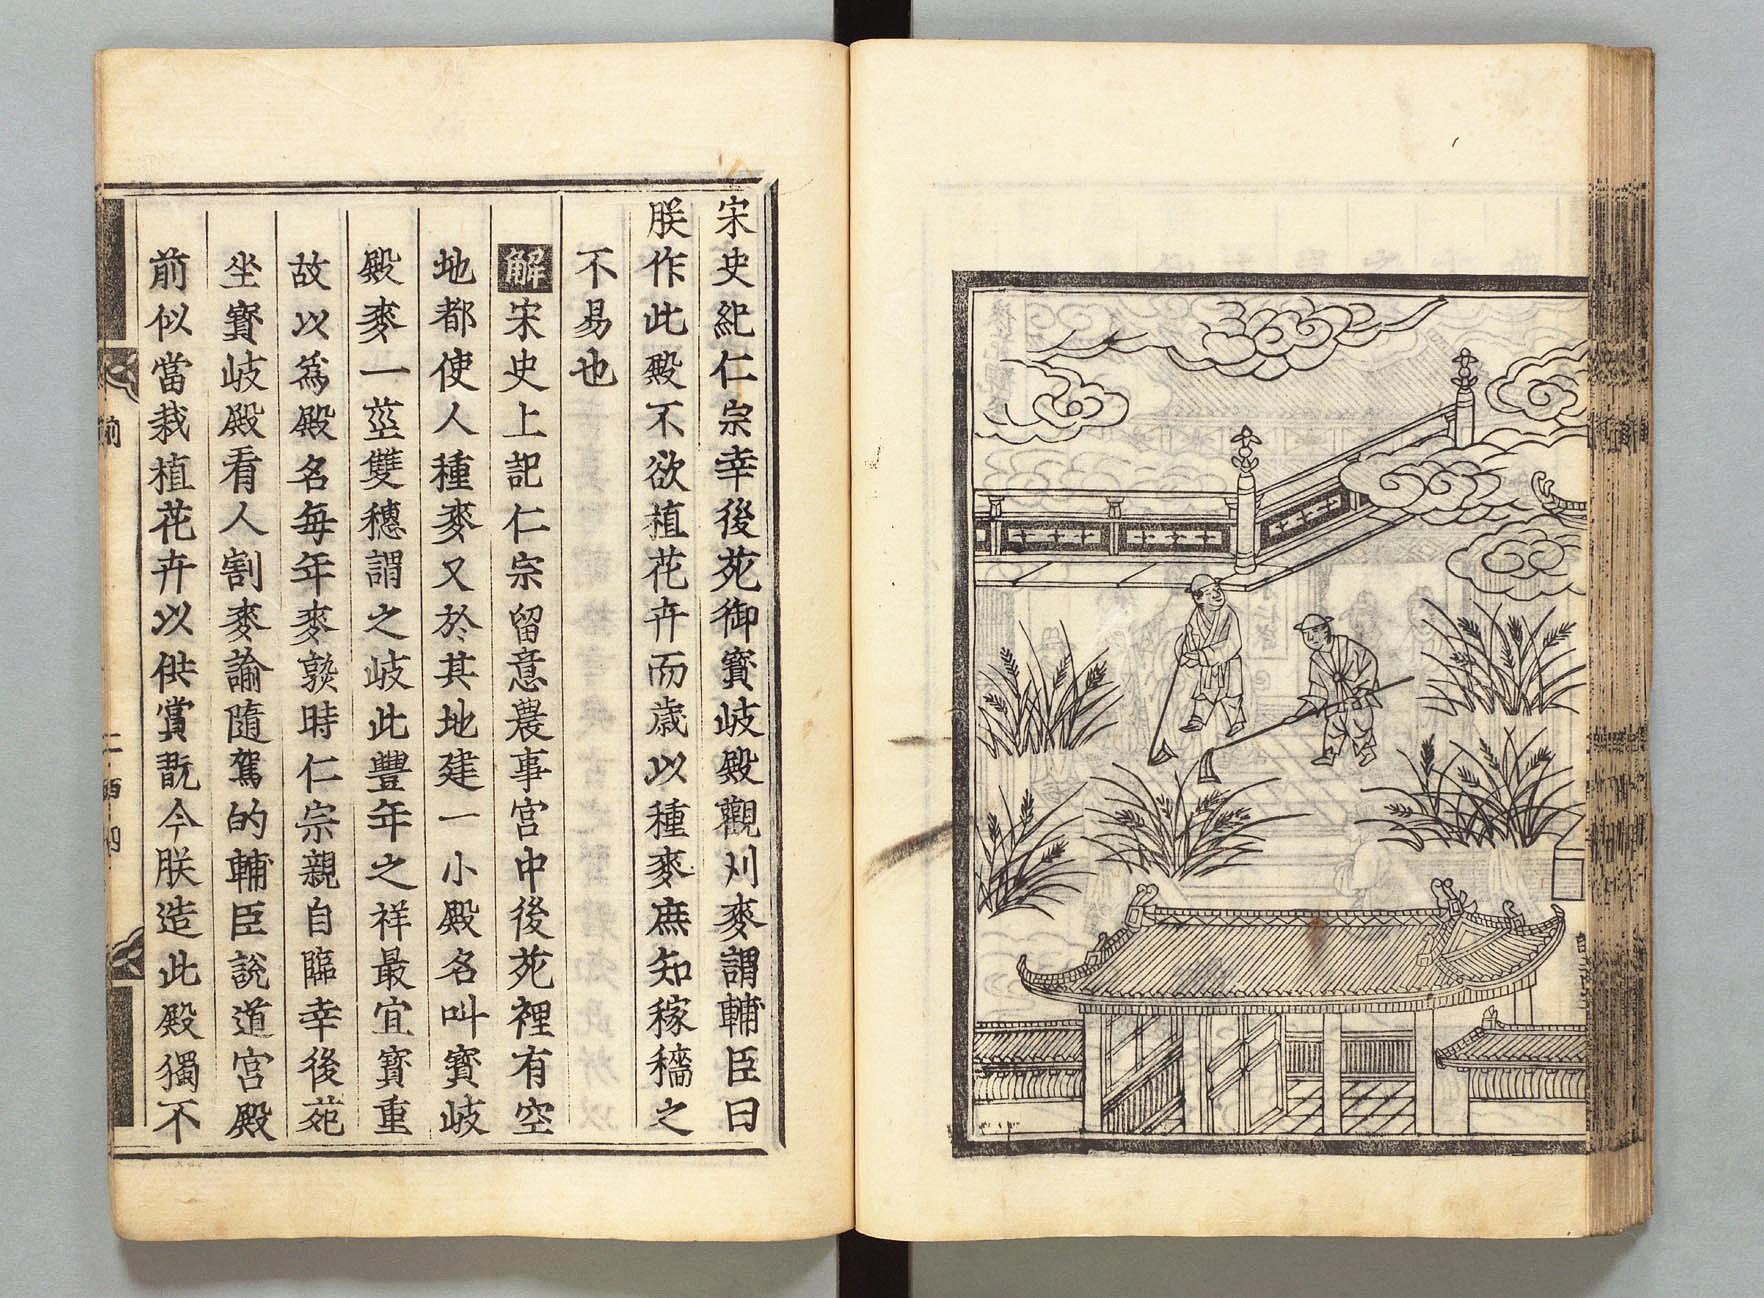 宋史紀仁宗幸後苑御寳岐殿觀刈麥謂輔臣曰
朕作此殿不欲植花卉而歳以種麥庶知稼穡之
不易也
解宋史上記仁宗留意農事宮中後苑裡有空
地都使人種麥又於其地建一小殿名叫寳岐
殿麥一莖雙穗謂之岐此豐年之祥最宜寳重
故以爲殿名每年麥熟時仁宗親自臨幸後苑
坐寳岐殿看人割麥諭隨駕的輔臣說道宮殿
前似當栽植花卉以供賞翫今朕造此殿獨不